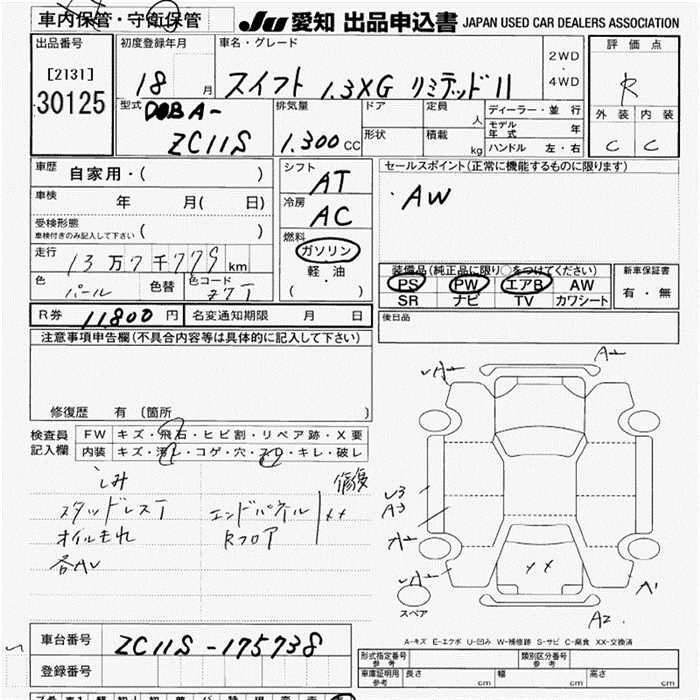 車内保管・守衛保管
JU 愛知 出品申込書 JAPAN USED CAR DEALERS ASSOCIATION
出品番号
[2131]
30125
初度登録年月
18 月
車名・グレード
スイフト 1.3XG リミテッドII
2WD
・
4WD
評価点
R
外装 内装
C C
型式
DOBA-
ZC11S
排気量
1.300 CC
ドア
形状
定員 人
積載 kg
ディーラー・並行
モデル年式 年
ハンドル 左・右
車歴 自家用・( )
車検 年 月( 日)
受検形態
車検付きのみ記入して下さい ( )
走行 13万7千779 km
色 パール 色替 色コード Z7T
シフト
AT
冷房
AC
燃料
ガソリン
・
軽油
( )
セールスポイント(正常に機能するものに限ります)
・AW
装備品(純正品に限り○をつけてください)
PS PW エアB AW
SR ナビ TV カワシート
新車保証書
有・無
R券 11,800 円 名変通知期限 月 日
後日品
注意事項申告欄(不具合内容等は具体的に記入して下さい)
修復歴 有 (箇所 )
検査員
記入欄
FW キズ・飛石・ヒビ割・リペア跡・X要
内装 キズ・汚レ・コゲ・穴・スレ・キレ・破レ
しみ
スタッドレスT
オイルもれ
各AU
修復
エンドパネル XX
Rフロア
A2
A2
U3
A3
A2
XX
A1
A2
スペア
A-キズ E-エクボ U-凹み W-補修跡 S-サビ C-腐食 XX-交換済
車台番号 ZC11S-175738
登録番号
形式指定番号
参考
類別区分番号
参考
車庫証明用
参考
長さ cm 幅 cm 高さ cm